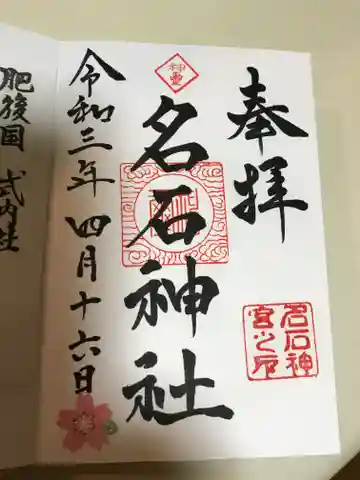 奉拝
神璽
名石神社
名石神
宮之印
令和三年四月十六日
肥後国 式内社